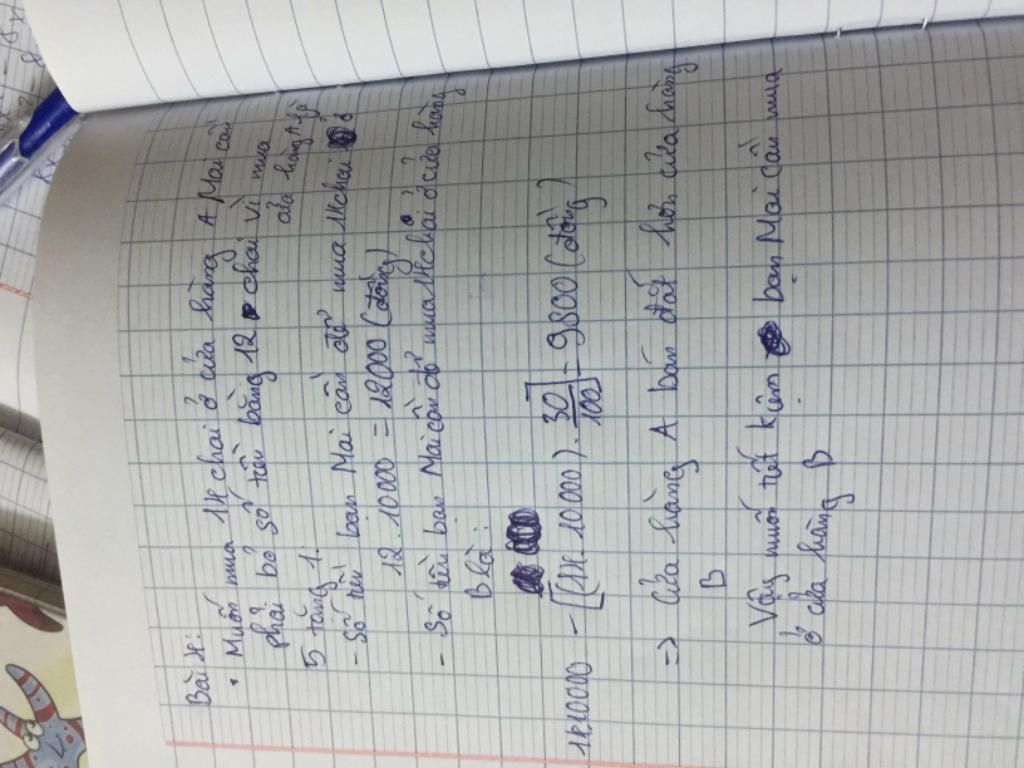 Bài 4:
• Muốn mua 14 chai ở cửa hàng A Mai cần
phải bỏ số tiền bằng 12 chai vì mua
cửa hàng A là
5 tặng 1.
- Số tiền bạn Mai cần để mua 14 chai ở
12.10000 = 12000 (đồng)
- Số tiền bạn Mai cần để mua 14 chai ở cửa hàng
B là:
14.10000 - [(14.10000).30/100] = 9800 (đồng)
=> Cửa hàng A bán đắt hơn cửa hàng
B
Vậy muốn tiết kiệm bạn Mai cần mua
ở cửa hàng B